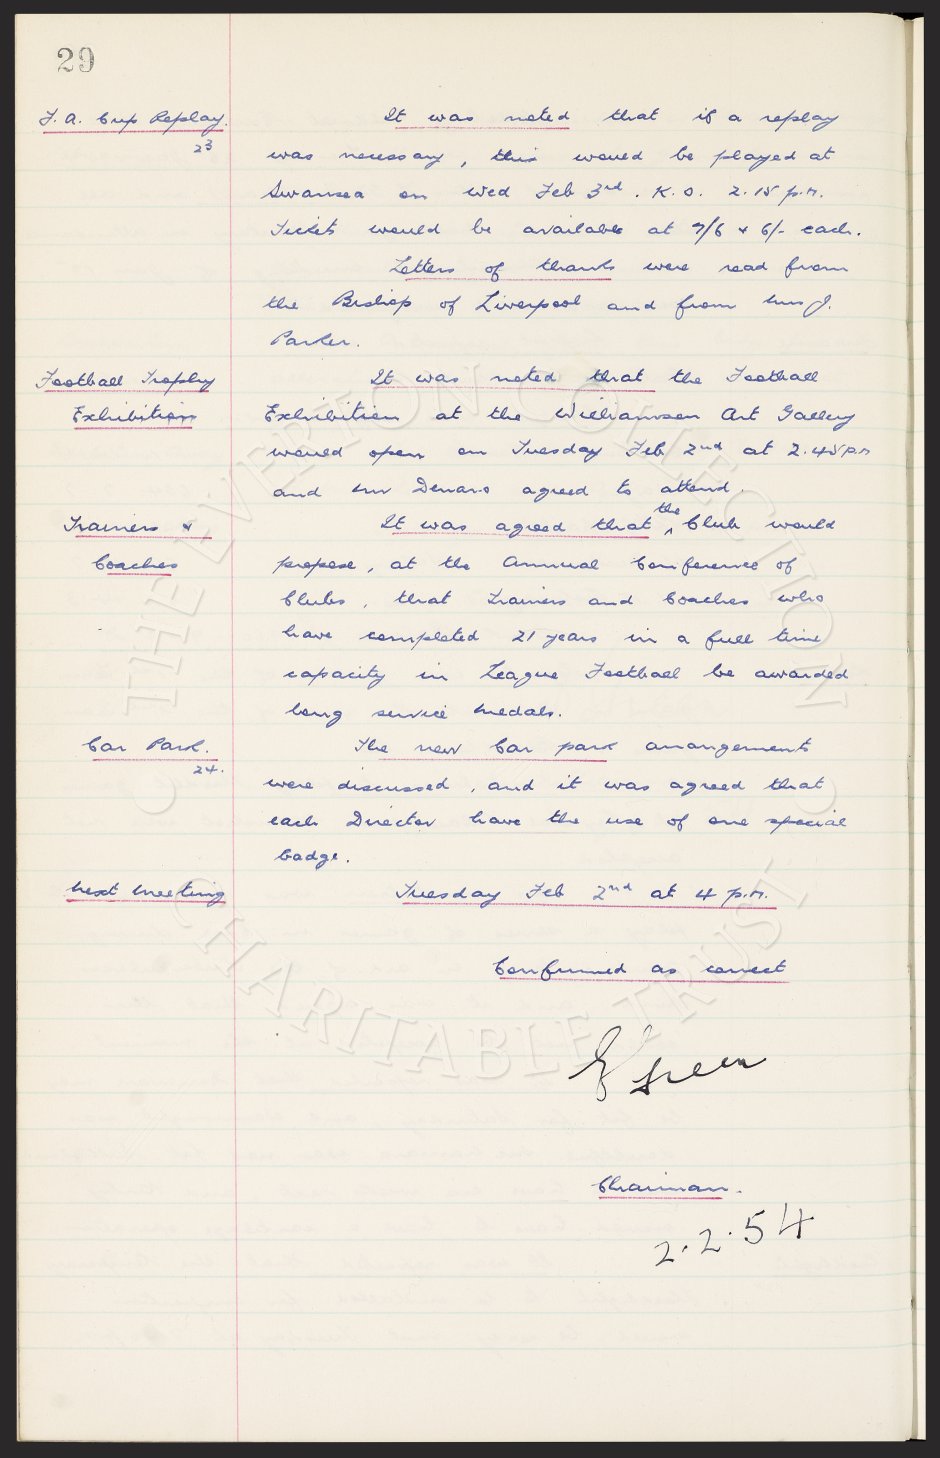 29
F. A. Cup Replay.
23
It was noted that if a replay
was necessary, this would be played at
Swansea on Wed Feb 3rd. K.O. 2.15 p.m.
Tickets would be available at 7/6 & 6/- each.
Letters of thanks were read from
the Bishop of Liverpool and from Mrs J.
Parker.
Football Trophy
Exhibition
It was noted that the Football
Exhibition at the Williamson Art Gallery
would open on Tuesday Feb 2nd at 2.45 p.m
and Mr Denaro agreed to attend.
Trainers &
Coaches
It was agreed that the Club would
propose, at the Annual Conference of
Clubs, that Trainers and Coaches who
have completed 21 years in a full time
capacity in League Football be awarded
long service medals.
Car Park.
24.
The new Car park arrangements
were discussed, and it was agreed that
each Director have the use of one special
badge.
Next Meeting
Tuesday Feb 2nd at 4 p.m.
Confirmed as correct
E Green
Chairman.
2.2.54
THE EVERTON COLLECTION
CHARITABLE TRUST